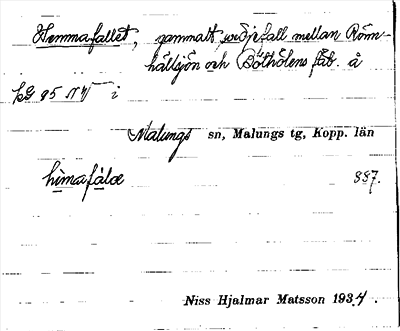 Hemmafallet, gammalt vidjefall mellan Röm-
hällsjön och Böthölens fäb. å
i
Malungs sn, Malungs tg, Kopp. län
himafálę 887.
Niss Hjalmar Matsson 1934.